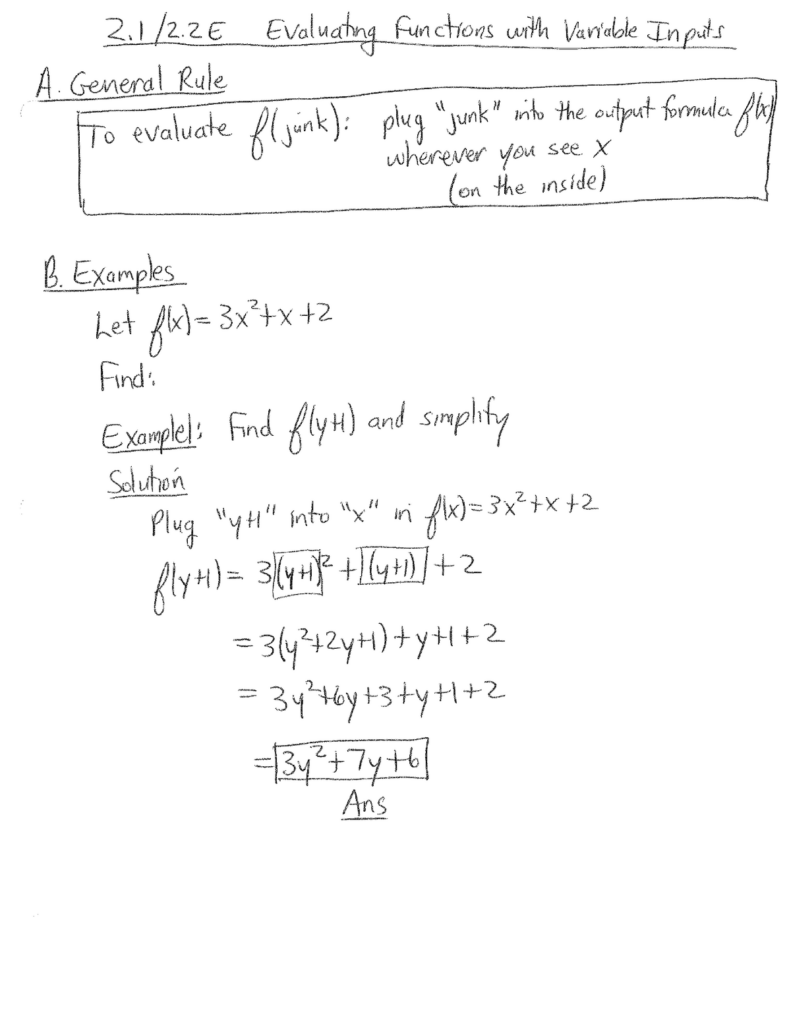 2.1/2.2E Evaluating Functions with Variable Inputs
A. General Rule
To evaluate f(junk): plug "junk" into the output formula f(x)
wherever you see x
(on the inside)
B. Examples
Let f(x)=3x²+x+2
Find:
Example1: Find f(y+1) and simplify
Solution
Plug "y+1" into "x" in f(x)=3x²+x+2
f(y+1)= 3(y+1)²+(y+1)+2
=3(y²+2y+1)+y+1+2
= 3y²+6y+3+y+1+2
=3y²+7y+6
Ans